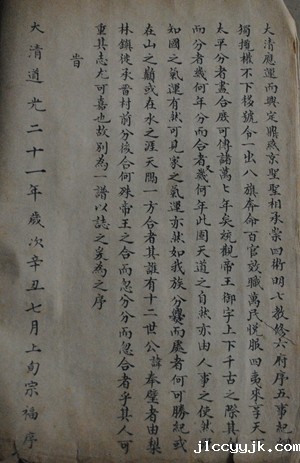 大清應運而興定鼎燕京聖聖相承崇四術明七教修六府序五事紀
獨攬權不下移號令一出八旗奔命百官效職萬民悅服四夷來享天
太平分者盡合底可傳諸萬世年矣統觀帝王御宇上下千古之際其
而分者幾何年分而合者又幾何年此固天道之自然亦由人事之使然
如國之氣運有然可見家之氣運亦然如我族分爨而處者何可勝紀或
在山之巔或在水之涯天隔一方合者其誰有十二世公諱奉璧者由梨
林鎮徙承當村前分後合何殊帝王之合而忽分分而忽合者乎其人可
重其志尤可嘉也故別為一譜以誌之矣為之序
旹
大清道光二十一年歲次辛丑七月上旬宗福序
jlccyyjk.com